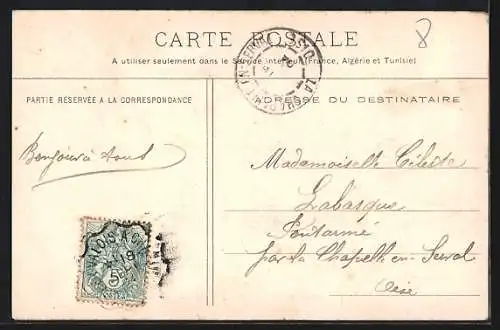 CARTE POSTALE
8
A utiliser seulement dans le Service intérieur (France, Algérie et Tunisie)
PARTIE RÉSERVÉE A LA CORRESPONDANCE
ADRESSE DU DESTINATAIRE
Bonjour à tous
Mademoiselle Céleste
Labasque
Pontarmé
par la Chapelle en Serval
Oise
5